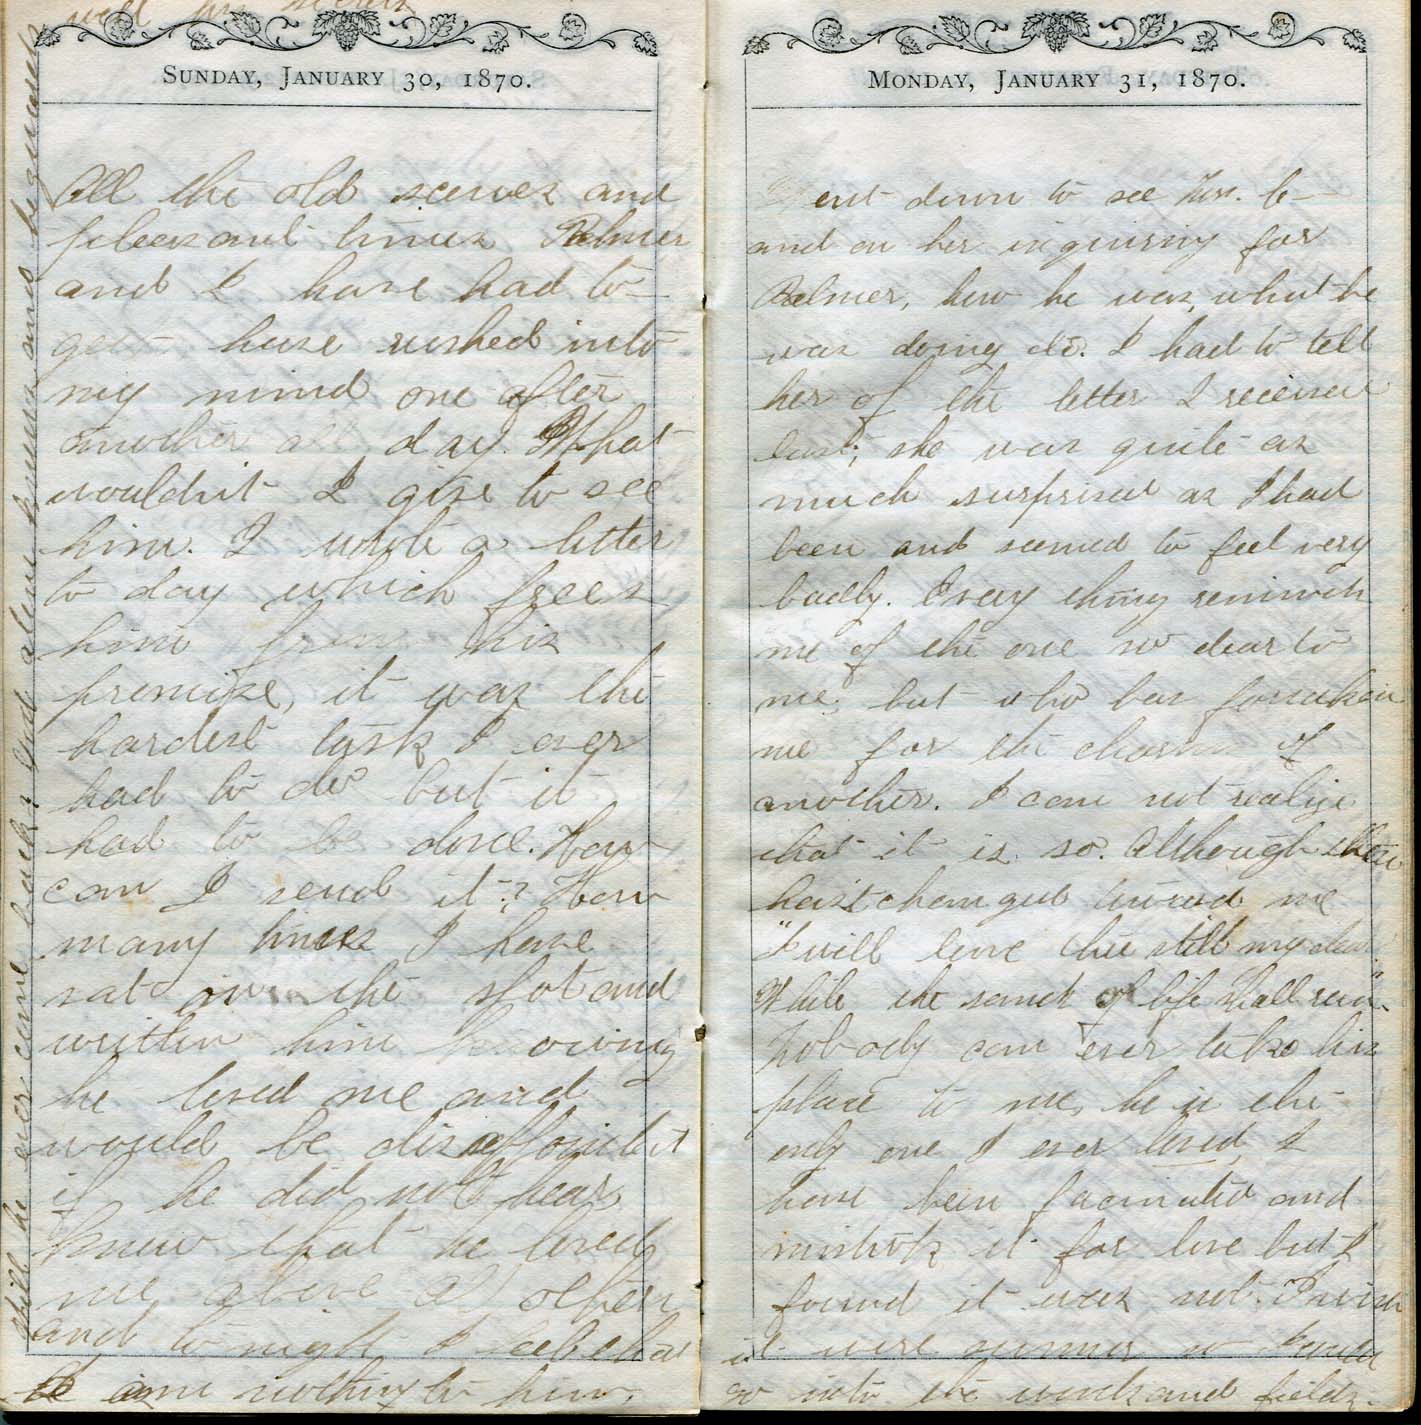 well
SUNDAY, JANUARY 30, 1870.
All the old scenes and
pleasant times Palmer
and I have had to-
get have rushed into
my mind one after
another all day. What
wouldn't I give to see
him. I wrote a letter
to day which frees
him from his
promise, it was the
hardest task I ever
had to do but it
had to be done. How
can I send it? How
many times I have
sat in the spot and
written him knowing
he loved me and
would be disappointed
if he did not hear,
knew that he loved
me above all others
and to night I feel that
I am nothing to him.
Will he ever come back? God alone knows and he
MONDAY, JANUARY 31, 1870.
Went down to see Mrs. C-
and on her inquiring for
Palmer, how he was, what he
was doing etc. I had to tell
her of the letter I received
last; she was quite as
much surprised as I had
been and seemed to feel very
badly. Every thing reminds
me of the one so dear to
me, but who has forsaken
me for the charms of
another. I can not realize
that it is so. Although thou
hast changed toward me
"I will love thee still my dear
While the sands of life shall run".
Nobody can ever take his
place to me, he is the
only one I ever loved, I
have been facinated and
mistook it for love but I
found it was not. I wish
it were summer so I could
go into the woods and fields.